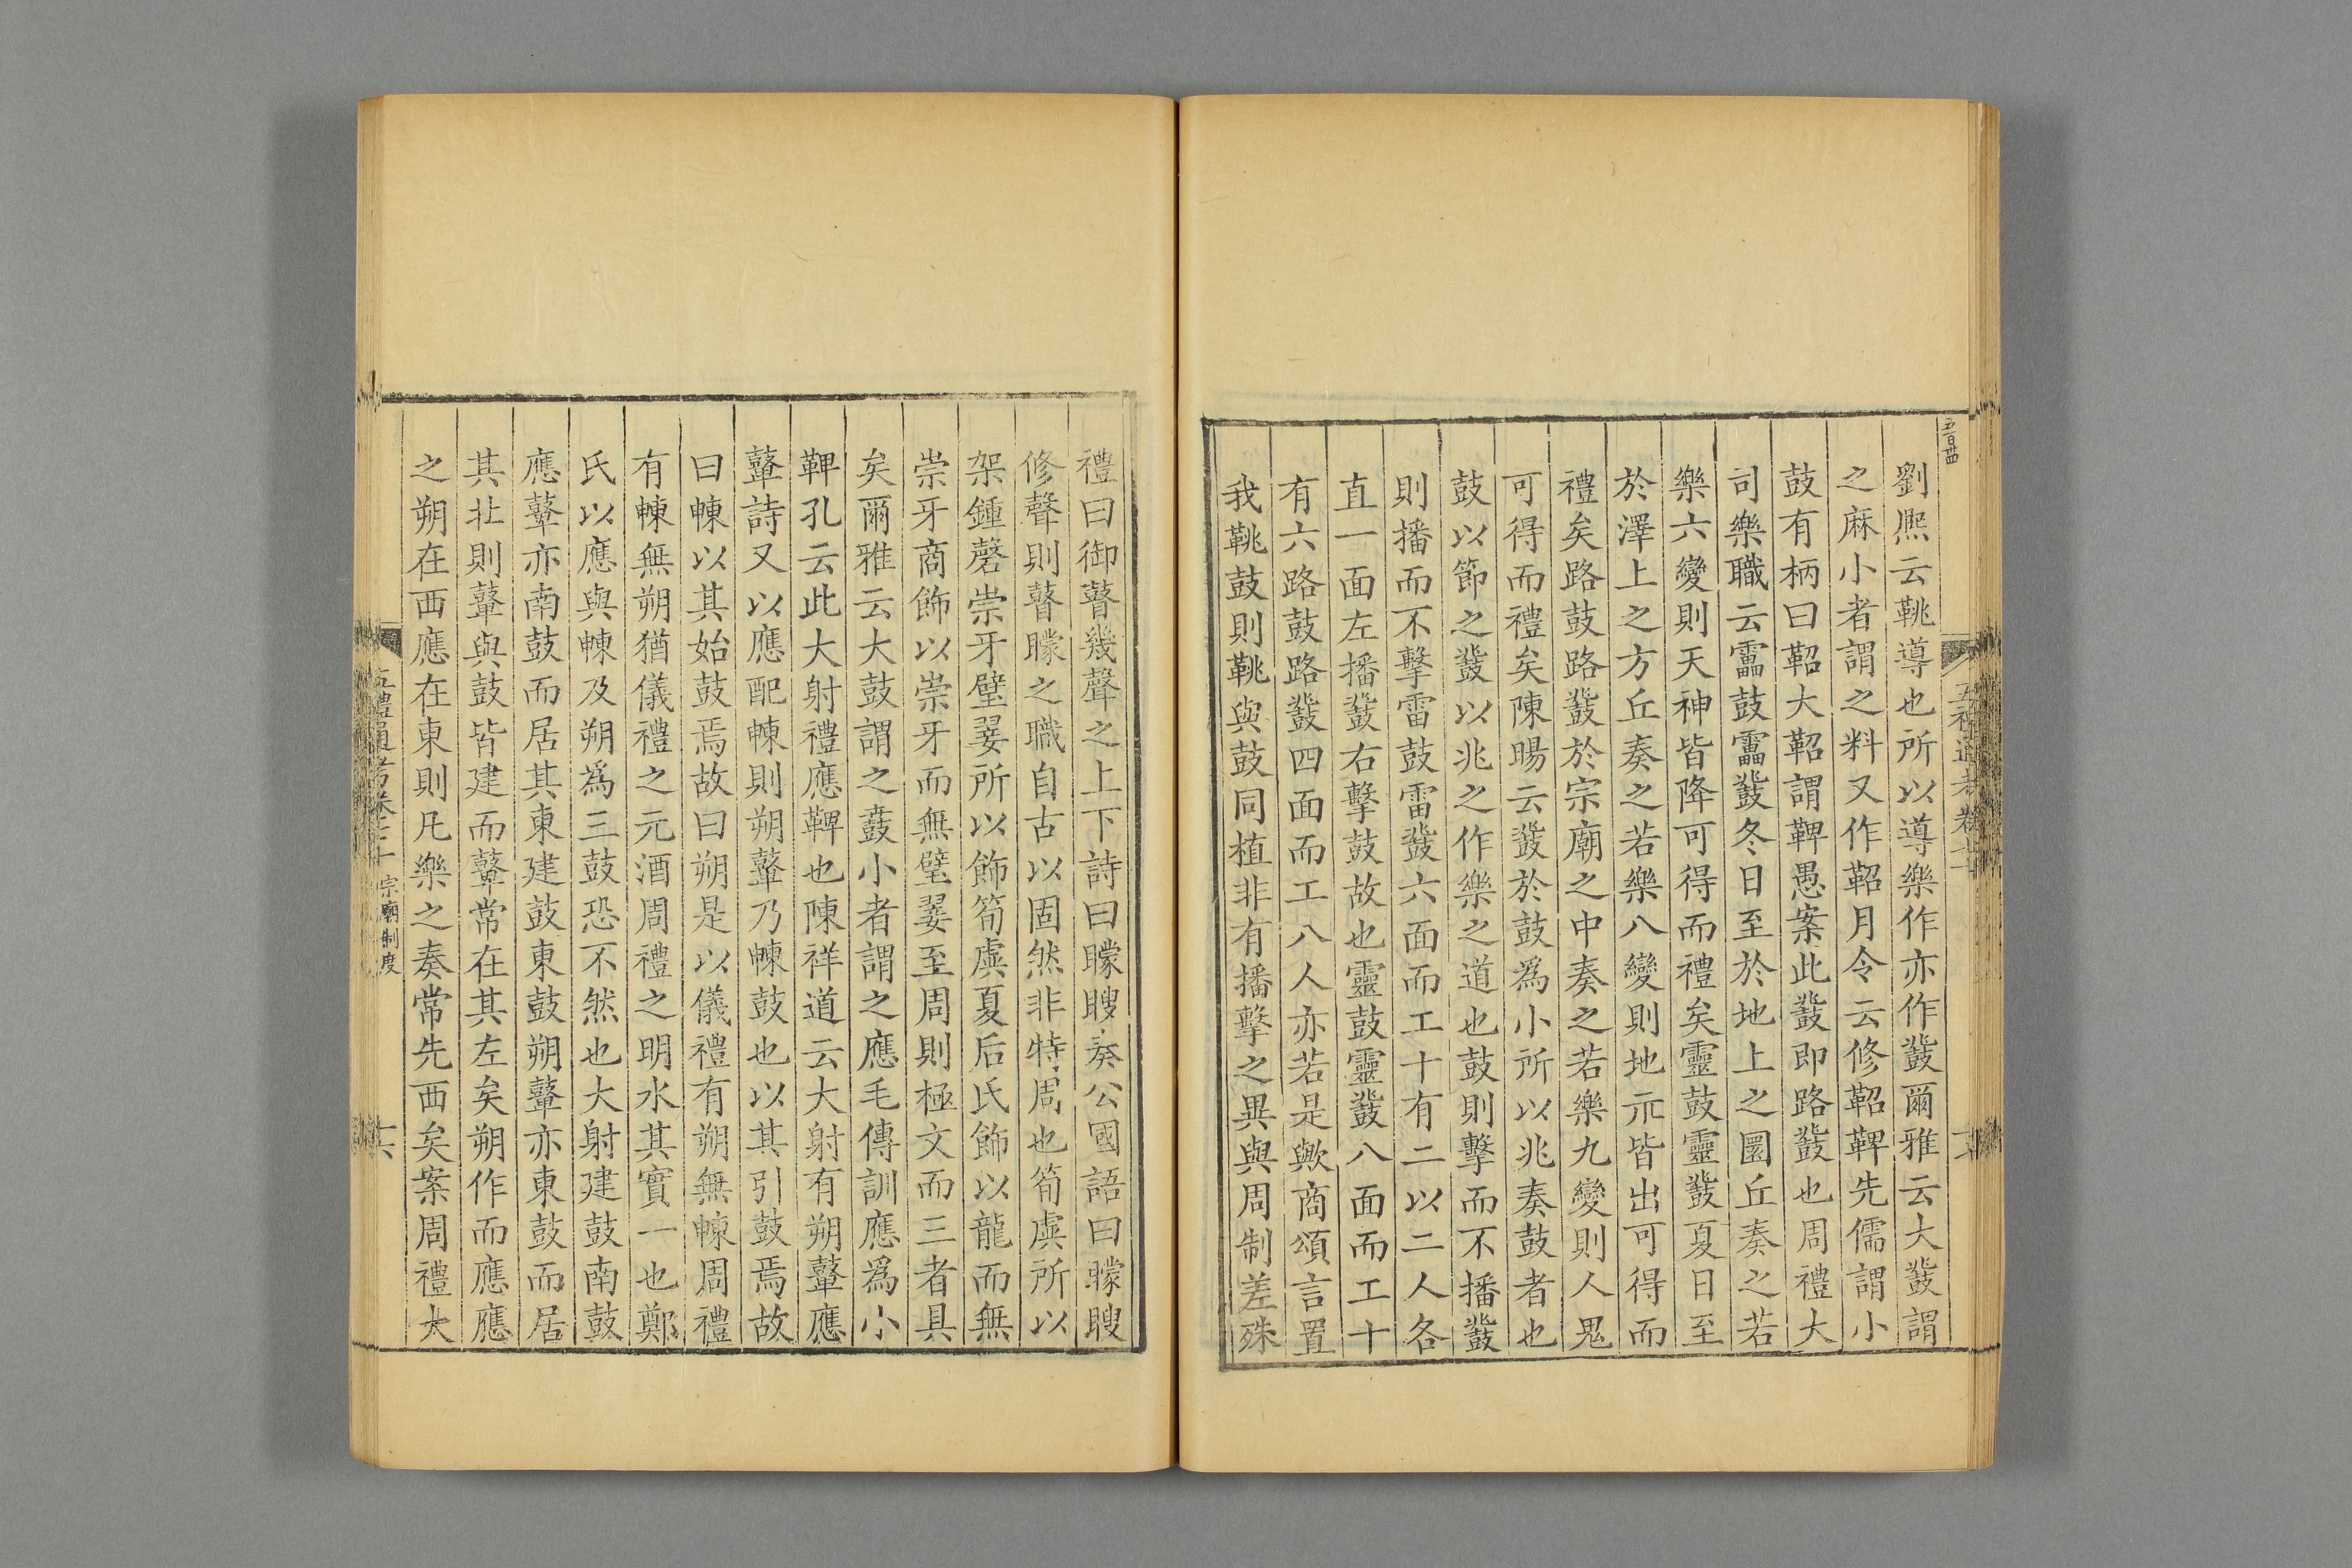 劉熈云鞉導也所以導樂作亦作鼗爾雅云大鼗謂
之麻小者謂之料又作鞀月令云修鞀鞞先儒謂小
鼓有柄曰鞀大鞀謂鞞愚案此鼗即路鼗也周禮大
司樂職云靁鼓靁鼗冬日至於地上之圜丘奏之若
樂六變則天神皆降可得而禮矣靈鼓靈鼗夏日至
於澤上之方丘奏之若樂八變則地示皆出可得而
禮矣路鼓路鼗於宗廟之中奏之若樂九變則人鬼
可得而禮矣陳暘云鼗於鼓為小所以兆奏鼓者也
鼓以節之鼗以兆之作樂之道也鼓則擊而不播鼗
則播而不擊雷鼓雷鼗六面而工十有二以二人各
直一面左播鼗右擊鼓故也靈鼓靈鼗八面而工十
有六路鼓路鼗四面而工八人亦若是歟商頌言置
我鞉鼓則鞉與鼓同植非有播擊之異與周制差殊
禮曰御瞽幾聲之上下詩曰矇瞍奏公國語曰矇瞍
修聲則瞽矇之職自古以固然非特周也筍虡所以
架鍾磬崇牙璧翣所以飾筍虡夏后氏飾以龍而無
崇牙商飾以崇牙而無璧翣至周則極文而三者具
矣爾雅云大鼓謂之鼖小者謂之應毛傳訓應為小
鞞孔云此大射禮應鞞也陳祥道云大射有朔鼙應
鼙詩又以應配朄則朔鼙乃朄鼓也以其引鼓焉故
曰朄以其始鼓焉故曰朔是以儀禮有朔無朄周禮
有朄無朔猶儀禮之元酒周禮之明水其實一也鄭
氏以應與朄及朔為三鼓恐不然也大射建鼓南鼓
應鼙亦南鼓而居其東建鼓東鼓朔鼙亦東鼓而居
其北則鼙與鼓皆建而鼙常在其左矣朔作而應應
之朔在西應在東則凡樂之奏常先西矣案周禮大
五禮通考卷七十 宗廟制度